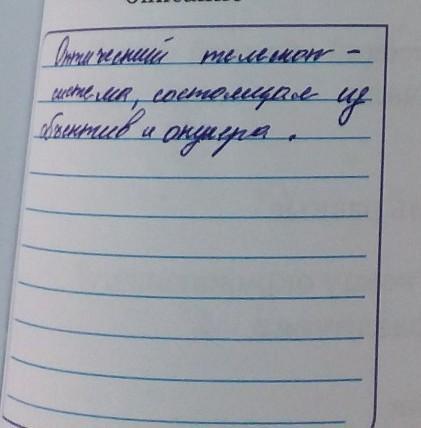 описание
Оптический телескоп –
система, состоящая из
объектив и окуляра.